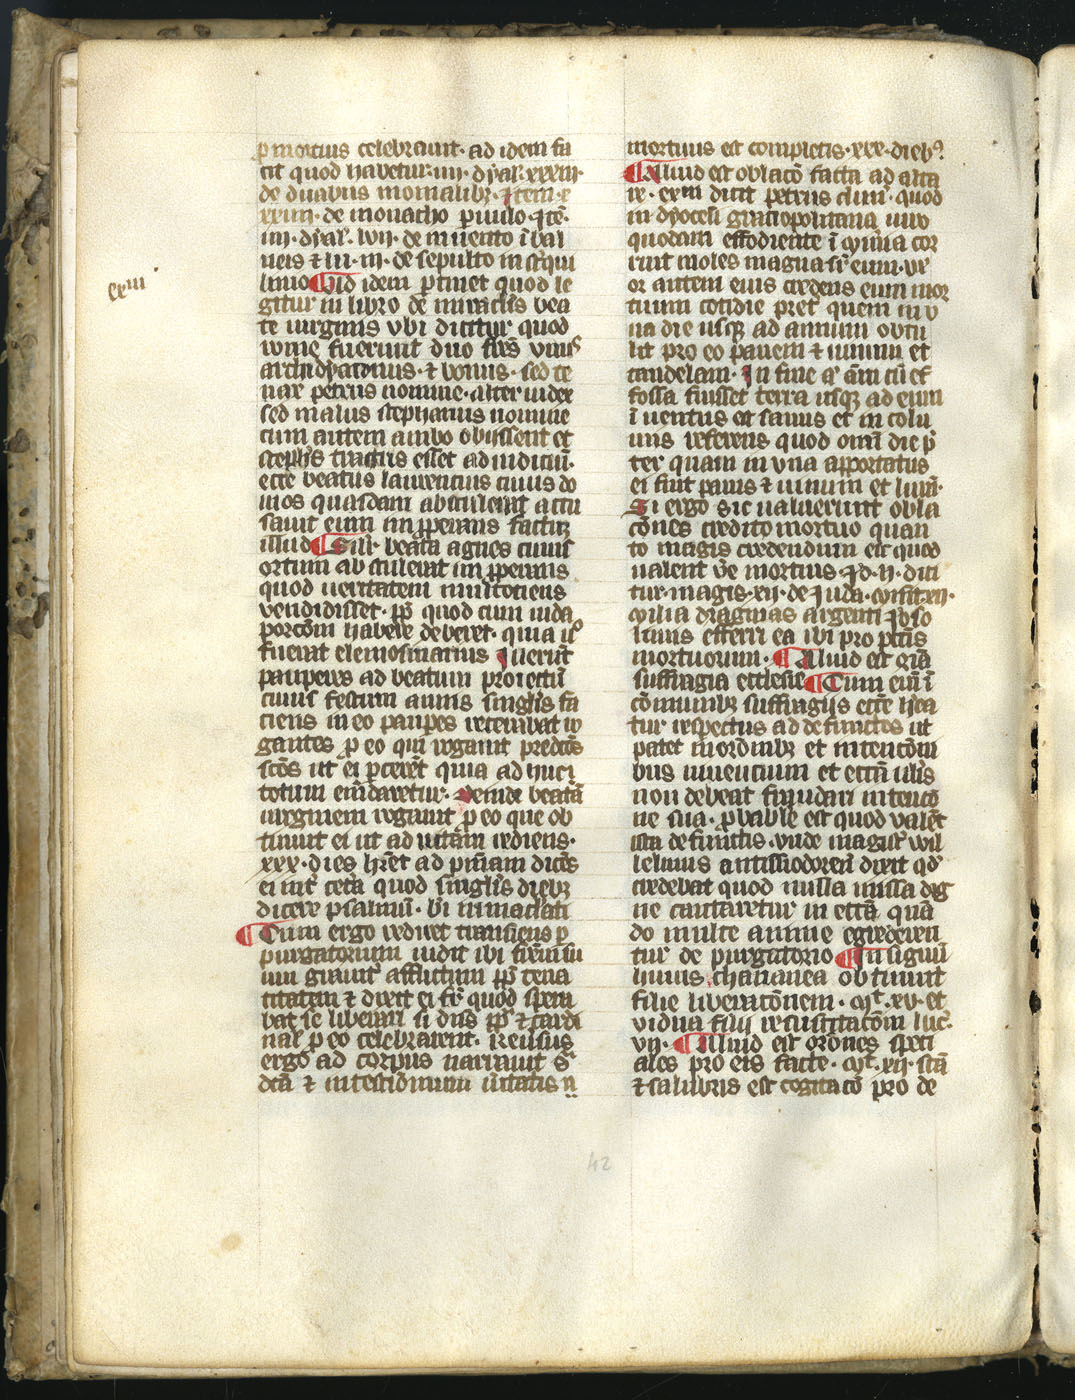 exiii
p mortuis celebrauit· ad idem fa
cit quod habetur· iiii· dyal· xxxiii·
de duabus monialibus· Item
xxiiii· de monacho priuato· Ite᷑·
iiii· dyal· lvii· de inuento i bal
neis ⁊ in· iii· de sepulto in sterqui
linio ¶ Ad idem ptinet quod le
gitur in libro de miraclis bea
te uirginis vbi dicitur quod
rome fuerunt duo frēs vnus
archidyaconus· ⁊ bonus· sed te
nax petrus nomine· alter iudex
sed malus stephanus nomine
cum autem ambo obijssent et
stephs tractus esset ad iudiciū·
ecce beatus laurencius cuius do
mos quasdam abstulerat accu
sauit eum impperans factum
illud ¶ Silr beata agnes cuius
ortum abstulerat impperans
quod ueritatem multociens
vendidisset· pp quod cum iuda
porcōm habere deberet· quia
fuerat elemosinarius Iuerunt
pauperes ad beatum proiectū
cuius festum annis singlis fa
ciens in eo paupes recreabat ro
gantes p eo qui rogauit predcōs
scōs ut ei pcerēt quia ad huc i
totum emdaretur· Deinde beatā
uirginem rogauit p eo que ob
tinuit ei ut ad uitam rediens·
xxx· dies hret ad pniam dicēs
ei int cetā quod singlis diebz
diceret psalmū· bti inmaclati
¶ Cum ergo rediret transiens p
purgatorium uidit ibi frem su
um grauit afflictum pp tena
citatem ⁊ dixit ei fr quod spera
bat se liberari si dns pp ⁊ cardi
nal p eo celebrarent· Reuersus
ergo ad corpus narrauit
dcā ⁊ in testiōnium uitatis
mortuus est completis· xxx· dieb9
¶ Aliud est oblacō facta ad alta
re· exm dicit petrus clun· quod
in dyocesi graciopolitana uiro
quodam effodiente i cuprina cor
ruit moles magna sr eum· ux
or autem eius credens eum mor
tuum cotidie preter quem in v
na die usqz ad annum obtu
lit pro eo panem ⁊ uinum et
candelam· In fine ar ani cū ef
fossa fuisset terra usqz ad eum
i uentus est sanus et in colu
mis referens quod omi die p
ter quam in vna apportatus
ei fuit panis ⁊ uinum et lum·
Si ergo sic ualuerunt obla
cōnes credito mortuo quan
to magis credendum est quod
ualent ve mortuis Id· n· dici
tur· magis· xii· de Iuda· misit xii·
milia dragmas argenti Iheroso
limis offerri ea ibi pro pctis
mortuorum· ¶ Aliud est gnā
suffragia ecclesie ¶ Cum eni i
cōmunibz suffragijs ecce hēa
tur respectus ad defunctos ut
patet in ordinibz et intencōni
bus iuuencium et eccā illis
non debeat fraudari intencō
ne sua· pbabile est quod valēt
ista defunctis· vnde magistr wil
lelmus antissiodoren dixit qd
credebat quod nulla missa dig
ne cantaretur in eccā quā
do multe anime egrederen
tur de purgatorio ¶ In signū
huius chananea obtinuit
filie liberacōnem· mt· xv· et
vidua filij resuscitacōm luc·
vii· ¶ Aliud est orōnes speci
ales pro eis facte· mt· xij· scā
⁊ salubris est cogitacō pro de
42